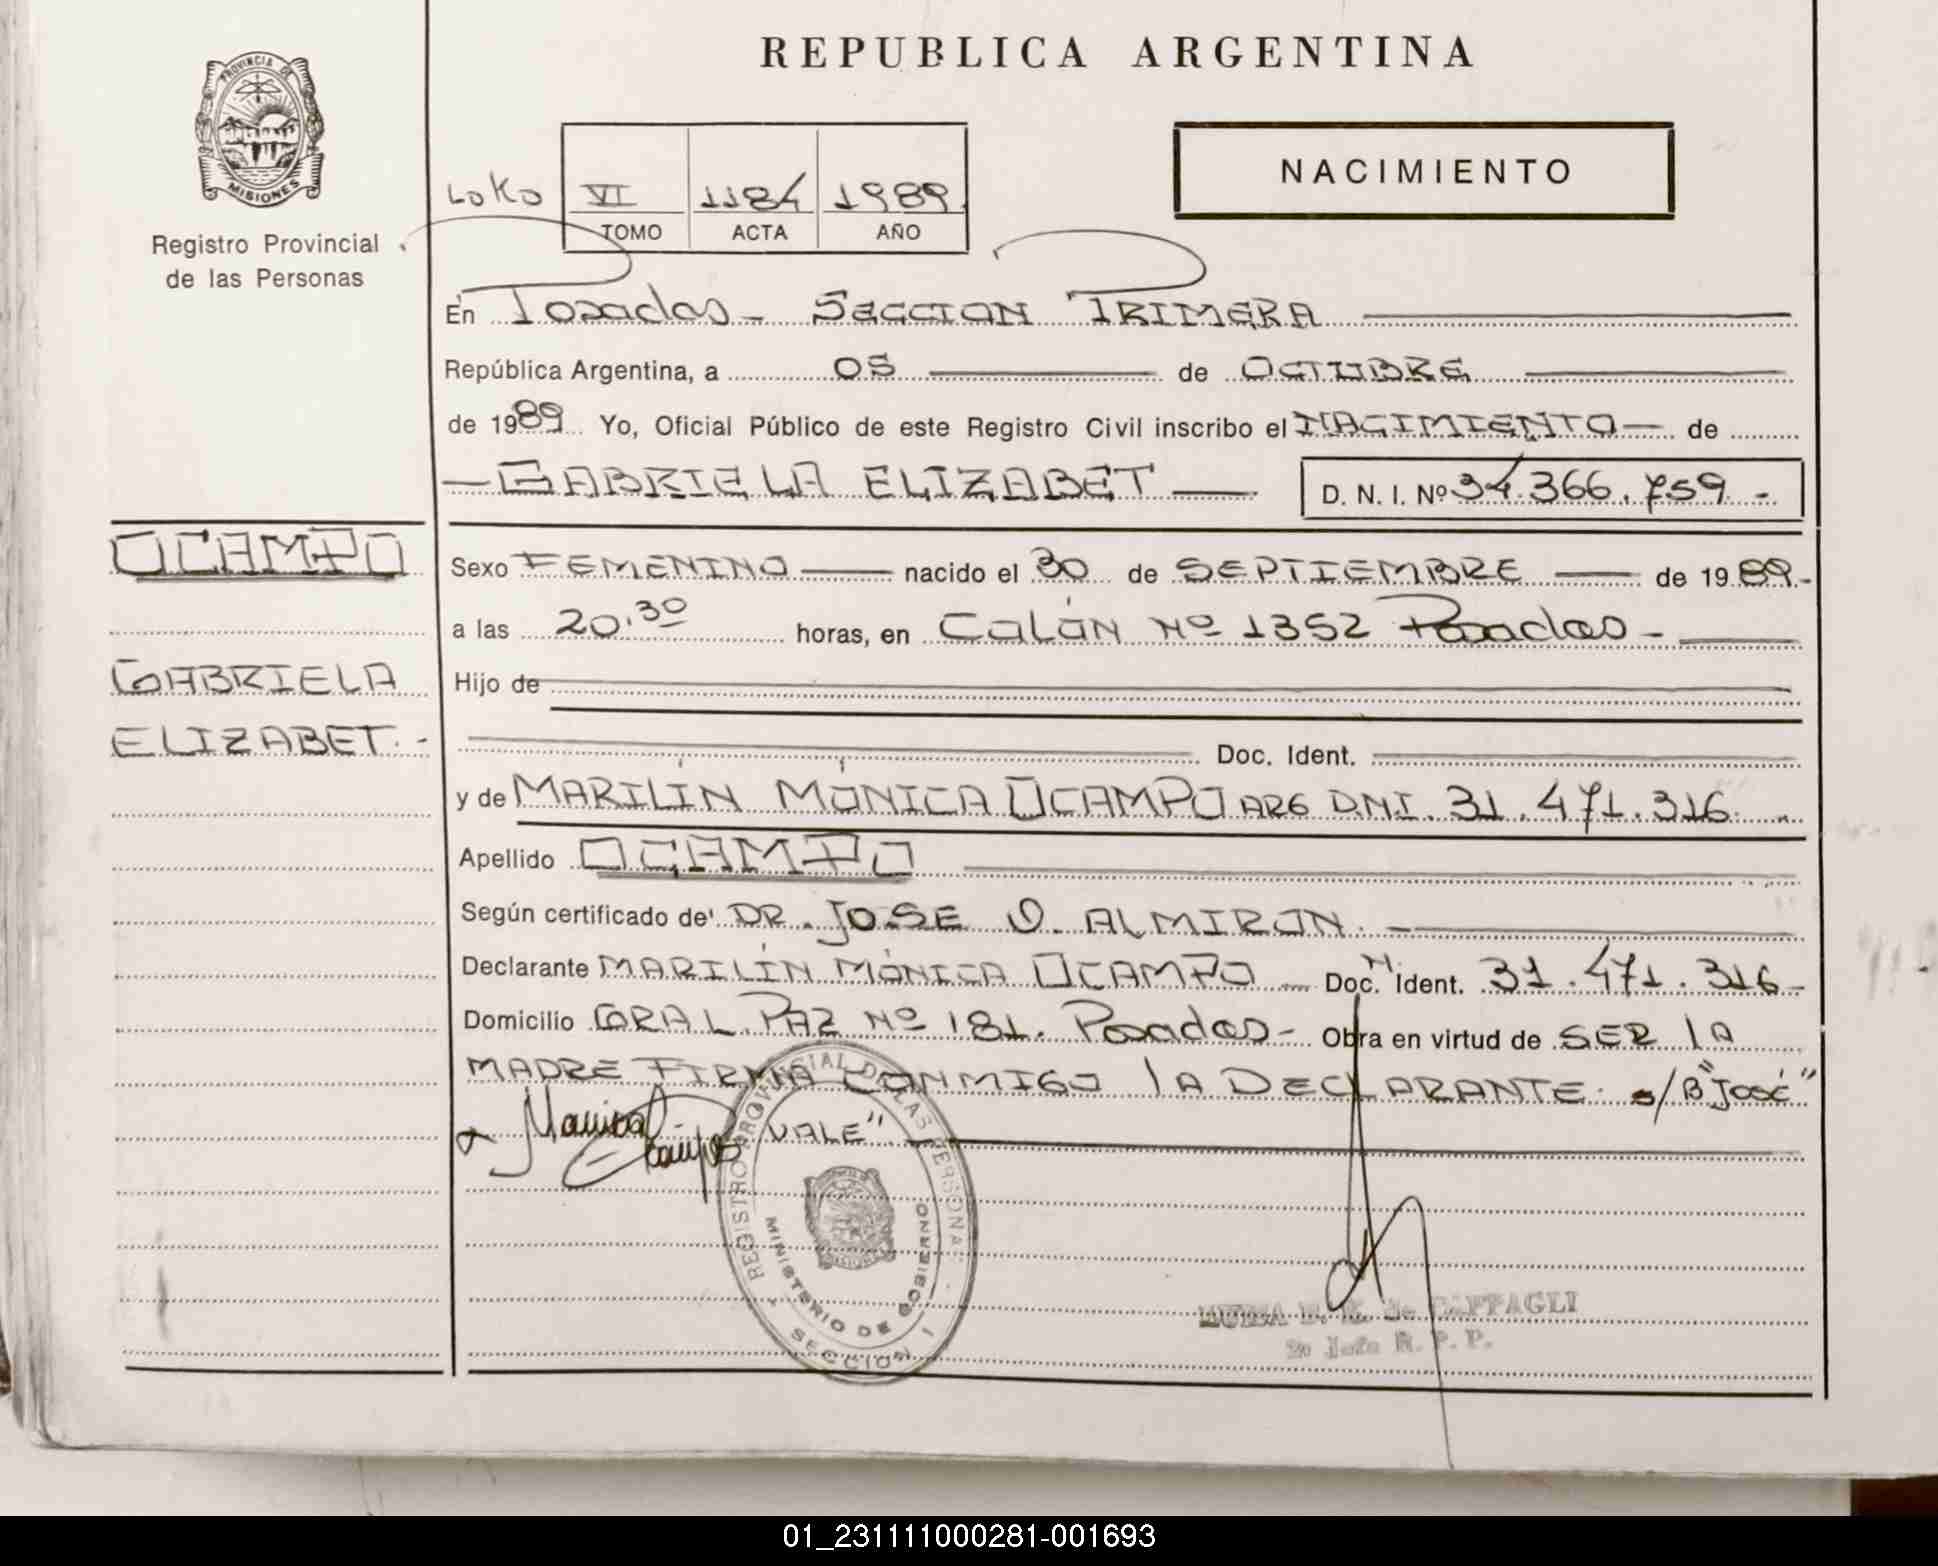 REPUBLICA ARGENTINA
PROVINCIA DE
MISIONES
Registro Provincial
de las Personas
NACIMIENTO
LOKO VI 1184 1989
TOMO ACTA AÑO
En Posadas - SECCION PRIMERA
República Argentina, a 05 de OCTUBRE
de 1989 Yo, Oficial Público de este Registro Civil inscribo el NACIMIENTO de
GABRIELA ELIZABET D. N. I. Nº 34.366.759.-
OCAMPO
GABRIELA
ELIZABET.-
Sexo FEMENINO nacido el 30 de SEPTIEMBRE de 1989.-
a las 20.30 horas, en Colón Nº 1352 Posadas -
Hijo de
Doc. Ident.
y de MARILÍN MÓNICA OCAMPO ARG DNI. 31.471.316.
Apellido OCAMPO
Según certificado de DR. JOSE O. ALMIRON.
Declarante MARILÍN MÓNICA OCAMPO Doc. Ident. 31.471.316-
Domicilio GRAL. PAZ Nº 181. Posadas- Obra en virtud de SER LA
MADRE FIRMA CONMIGO LA DECLARANTE. s/B "JOSÉ"
VALE"
Monica Ocampo
REGISTRO PROVINCIAL DE LAS PERSONAS
MINISTERIO DE GOBIERNO
SECCION I
DE CAFFAGLI
2º Jefe R. P. P.
01_231111000281-001693